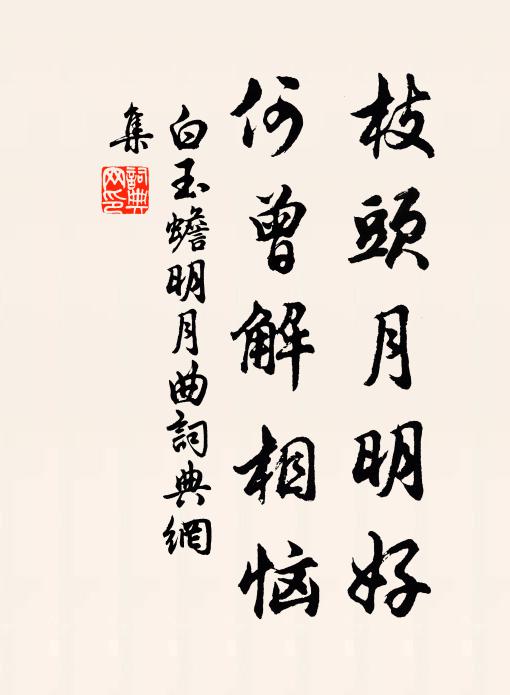 枝頭月明好
何曾解相恼
白玉蟾明月曲詞典網
集
詞典
网印